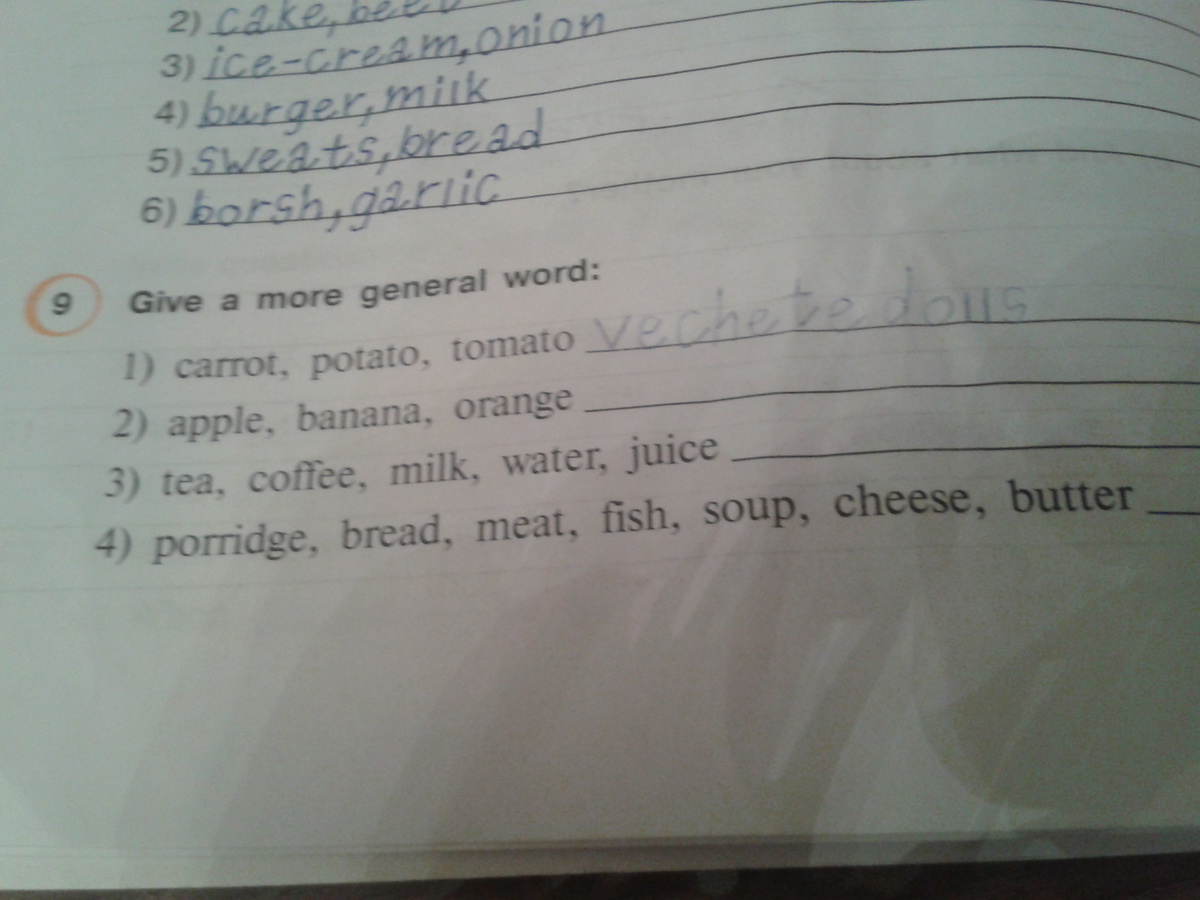 2) cake, beet
3) ice-cream, onion
4) burger, milk
5) sweats, bread
6) borsh, garlic
9 Give a more general word:
1) carrot, potato, tomato vechetedolls
2) apple, banana, orange
3) tea, coffee, milk, water, juice
4) porridge, bread, meat, fish, soup, cheese, butter